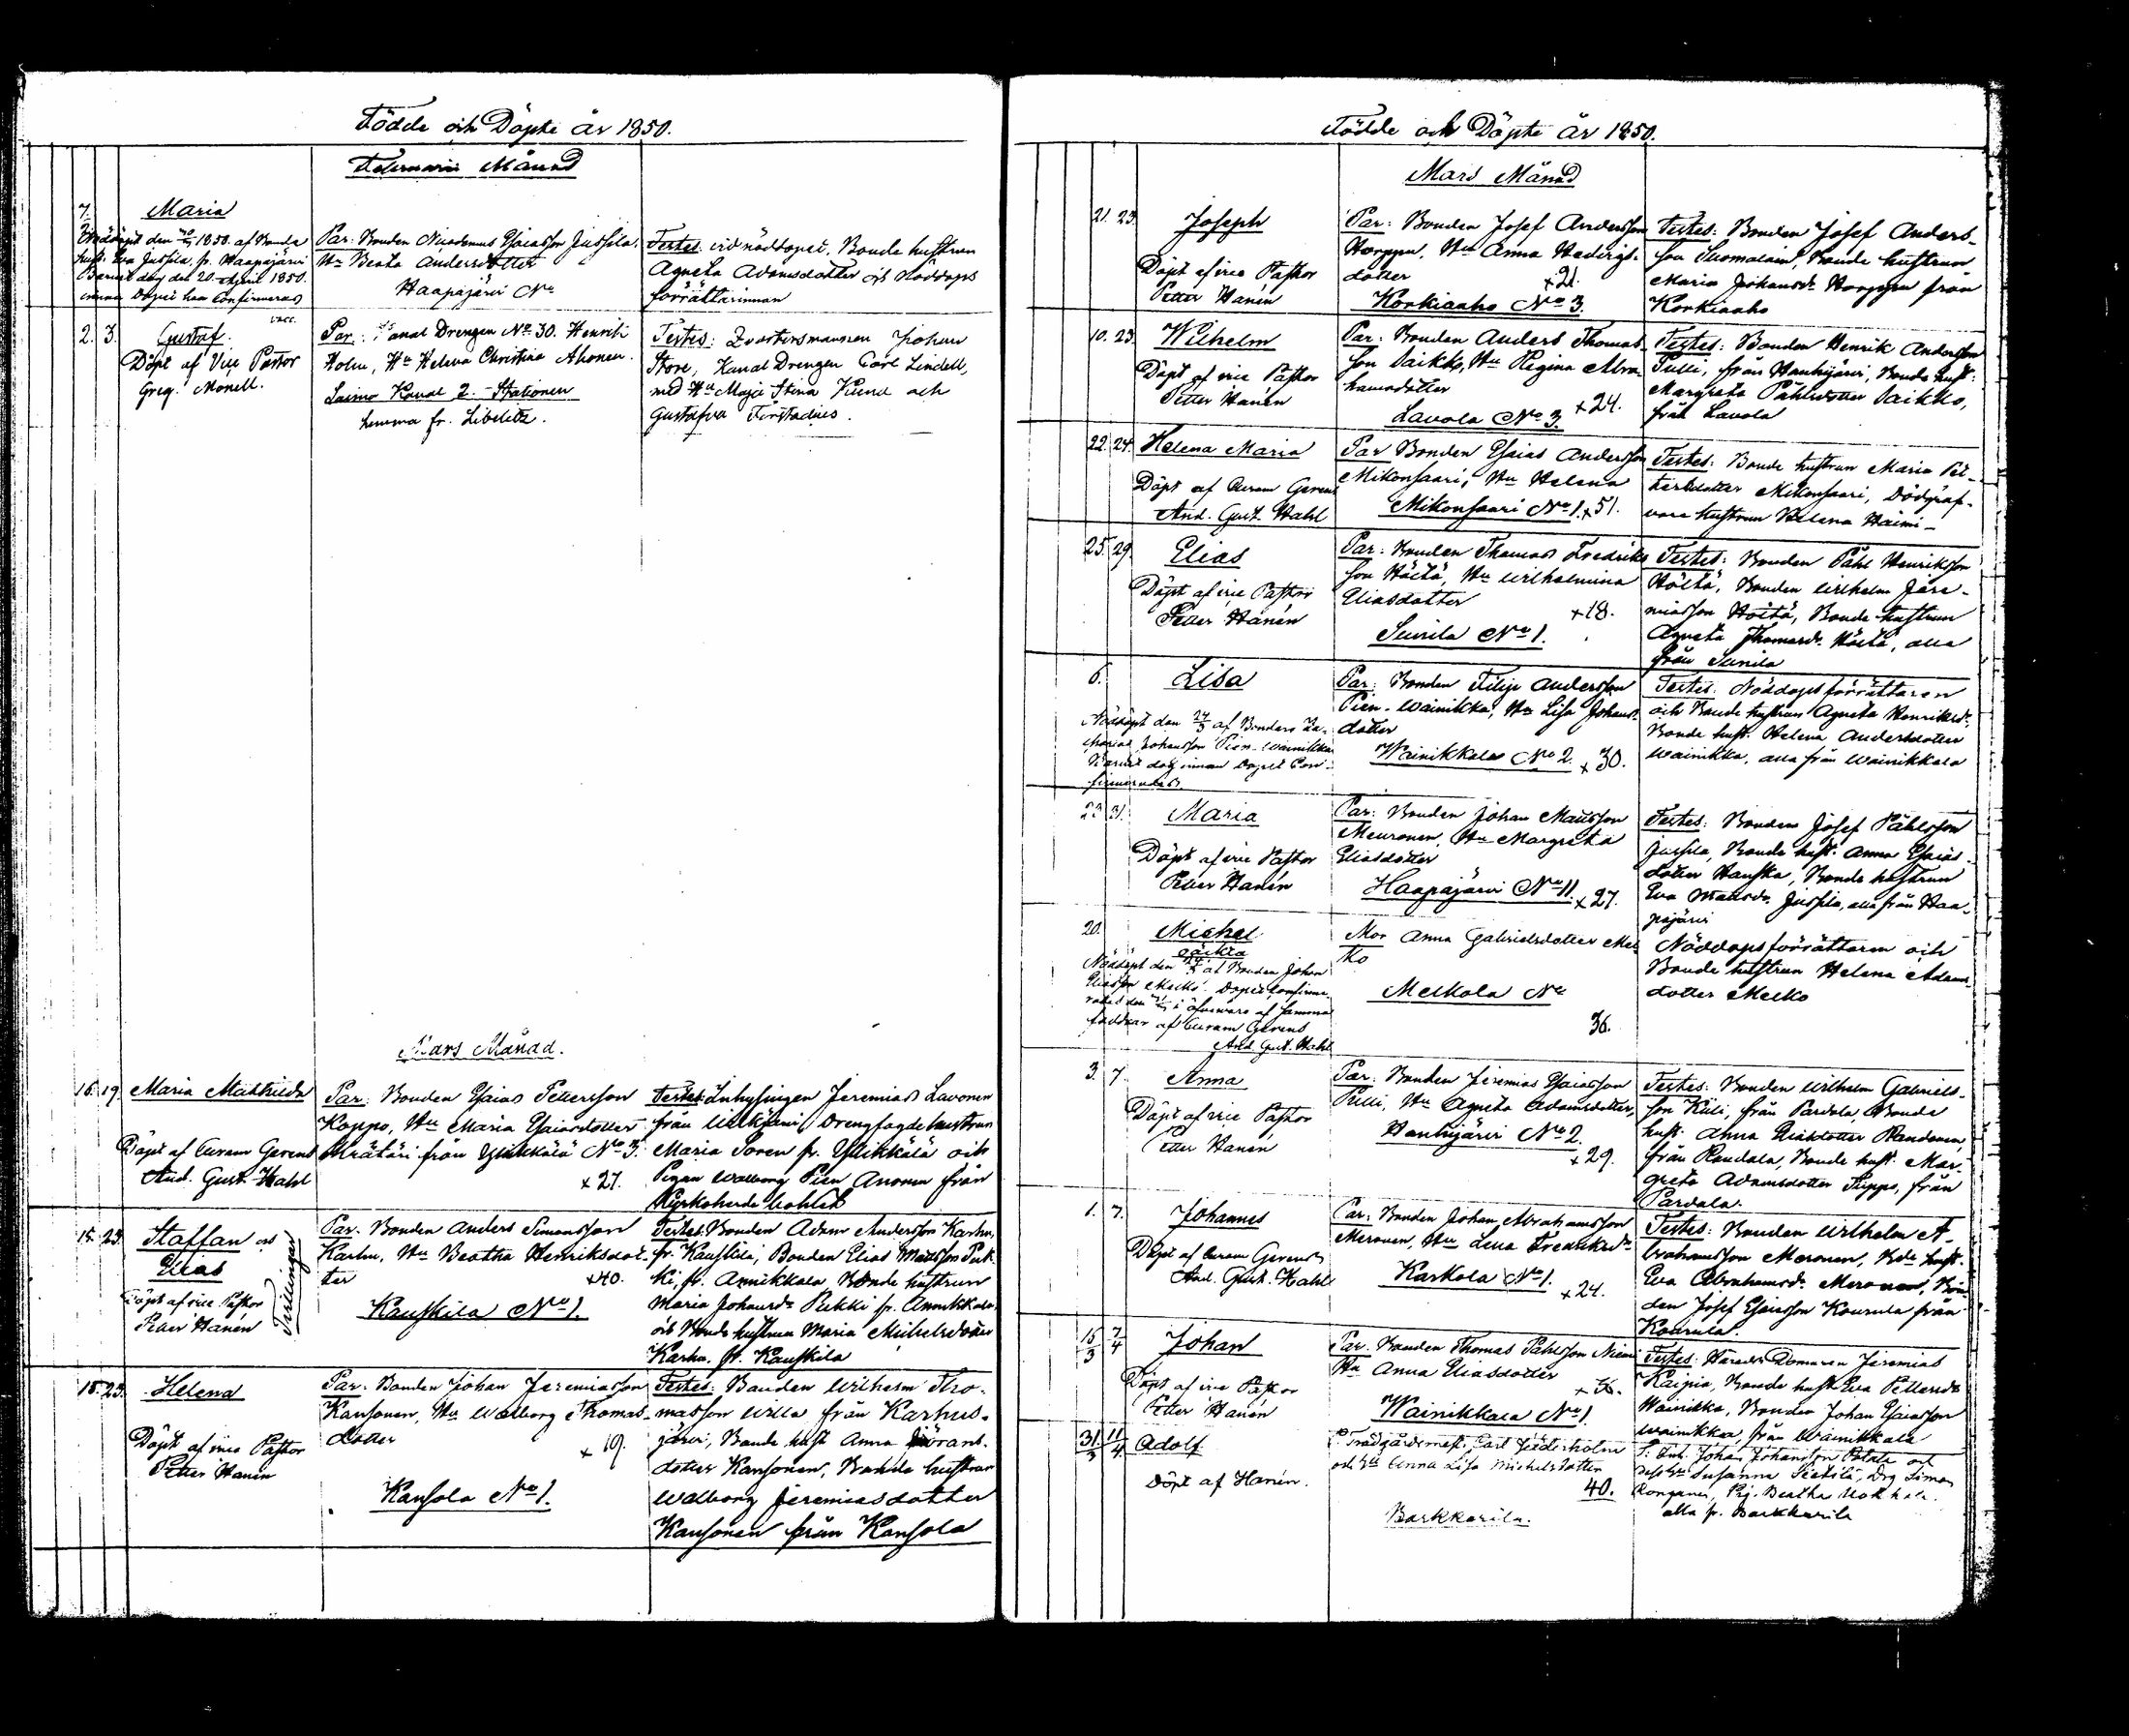 Födde och Döpte år 1850.
Februarii Månad
7.
Maria
Nöddöpt den 1850 af Bonde
hust. Eva Jussila, fr. Haapajärvi
Barnet dog den 20 April 1850
innan Dopet han Confirmeras
Par: Bonden Nicodemus Esaiasson Jussila,
Hu Beata Andersdotter
Haapajärvi No
Testes: vid nöddopet, Bonde hustrun
Agneta Adamsdotter och Nöddops
förrättarinnan
2. 3.
Gustaf
vacc.
Döpt af Vice Pastor
Greg. Monell.
Par: Canal Drengen No 30. Henrik
Holm, Hu Helena Christina Ahonen.
Saima Kanal 2. Stationen
fr. Libelitz.
Testes: Johan
Store, Kanal Drengen Carl Lindell,
med Hu Maja Stina och
Gustafva
Mars Månad.
16. 19.
Maria Mathilda
Döpt af Curam Gerens
And. Gust. Hahl
Par: Bonden Esaias Pettersson
Koppo, Hu Maria Esaiasdotter
Krätäri från Ylikkälä No 3.
x 27.
Testes: Inhysingen Jeremias Lavonen
från Drengfogde hustrun
Maria Soren fr. Ylikkälä och
Pigan Walborg Pien Anonen från
Kyrkoherde bohlet
15. 23.
Staffan och
Elias
Tvillingar
Döpt af vice Pastor
Petter Hanén
Par: Bonden Anders Simonsson
Karhu, Hu Beatha Henriksdot-
ter
x 40.
Kauskila No 1.
Testes: Bonden Adam Andersson Karhu,
fr. Kauskila, Bonden Elias Mattsson Puk-
ki, fr. Armikkala, Bonde hustrun
Maria Johansdr Pukki fr. Armikkala
och Bonde hustrun Maria Michelsdotter
Karhu, fr. Kauskila
18. 23.
Helena
Döpt af vice Pastor
Petter Hanén
Par: Bonden Johan Jeremiasson
Kansonen, Hu Walborg Thomas-
dotter
x 19.
Kansola No 1.
Testes: Bonden Wilhelm Tho-
masson Willa från Karhus-
järvi, Bonde hust Anna Görans-
dotter Kansonen, Bonde hustrun
Walborg Jeremiasdotter
Kansonen från Kansola
Födde och Döpte år 1850.
Mars Månad
21. 23.
Joseph
Döpt af vice Pastor
Petter Hanén
Par: Bonden Josef Andersson
Horppu, Hu Anna Hedvigs-
dotter
x 21.
Korkiaaho No 3.
Testes: Bonden Josef Anders-
son Suomalain, Bonde hustrun
Maria Johansdr Horppu från
Korkiaaho
10. 23.
Wilhelm
Döpt af vice Pastor
Petter Hanén
Par: Bonden Anders Thomas-
son Saikko, Hu Regina Abra-
hamsdotter
x 24.
Lavola No 3.
Testes: Bonden Henrik Andersson
Pulli, från Hanhijärvi, Bonde hust:
Margreta Påhlsdotter Saikko,
från Lavola
22. 24.
Helena Maria
Döpt af Curam Gerens
And. Gust. Hahl
Par Bonden Esaias Andersson
Mikonsaari, Hu Helena
Mikonsaari No 1. x 51.
Testes: Bonde hustrun Maria Pet-
tersdotter Mikonsaari, Dödgräf-
vare hustrun Helena Haimi-
25. 29.
Elias
Döpt af vice Pastor
Petter Hanén
Par: Bonden Thomas Fredriks
son Höltä, Hu Wilhelmina
Eliasdotter
x 18.
Sunila No 1.
Testes: Bonden Påhl Henriksson
Höltä, Bonden Wilhelm Jere-
miasson Höltä, Bonde hustrun
Agneta Thomasdr Höltä, alla
från Sunila
6.
Lisa
Nöddöpt den 24/3 af Bonden Za-
charias Johansson Pien-Wainikka
Barnet dog innan Dopet Con-
firmerades.
Par: Bonden Filip Andersson
Pien-Wainikka, Hu Lisa Johans-
dotter
Wainikkala No 2. x 30.
Testes: Nöddops förrättaren
och Bonde hustrun Agneta Henriksdr
Bonde hust. Helena Andersdotter
Wainikka, alla från Wainikkala
23 31.
Maria
Döpt af vice Pastor
Petter Hanén
Par: Bonden Johan Mattsson
Meuronen, Hu Margreta
Eliasdotter
Haapajärvi No 11. x 27.
Testes: Bonden Josef Påhlsson
Jussila, Bonde hust. Anna Esaias-
dotter Hauska, Bonde hustrun
Eva Mattsdr Jussila, alla från Haa-
pajärvi
20.
Michel
oäkta
Nöddöpt den af Bonden Johan
Eliasson Melko. Dopet Confirme-
rades den i öfvervaro af samma
faddrar af Curam Gerens
And. Gust. Hahl
Mor Anna Gabrielsdotter Mel-
ko
Melkola No
36.
Nöddopsförrättaren och
Bonde hustrun Helena Adams-
dotter Melko
3. 7.
Anna
Döpt af vice Pastor
Petter Hanén
Par: Bonden Jeremias Esaiasson
Pulli, Hu Agneta Adamsdotter,
Hanhijärvi No 2.
x 29.
Testes: Bonden Wilhelm Gabriels-
son Kuli, från Partala, Bonde
hust. Anna Eliasdotter Randonen,
från Raudala, Bonde hust. Mar-
greta Adamsdotter Suppo, från
Partala.
1. 7.
Johannes
Döpt af Curam Gerens
And. Gust. Hahl
Par: Bonden Johan Abrahamsson
Meronen, Hu Lena Fredriksdr
Karkola No 1.
x 24.
Testes: Bonden Wilhelm A-
brahamsson Meronen, Bde hust.
Eva Abrahamsdr Meronen, Bon-
den Josef Esaiasson Kourula från
Kourula.
15/3 7/4
Johan
Döpt af vice Pastor
Petter Hanén
Par: Bonden Thomas Påhlsson Niemi
Hu Anna Eliasdotter
x 36.
Wainikkala No 1.
Testes: Härads Domaren Jeremias
Kaipia, Bonde hust Eva Pettersdr
Wainikka, Bonden Johan Esaiasson
Wainikka, från Wainikkala
31/3 11/4
Adolf
Döpt af Hanén.
P: Trädgårdsmäst. Carl Söderholm
och Hu Anna Lisa Michelsdotter
40.
Barkkarila.
Johan Johansson och
Susanna Drg Simon
Beatha
alla fr. Barkkarila